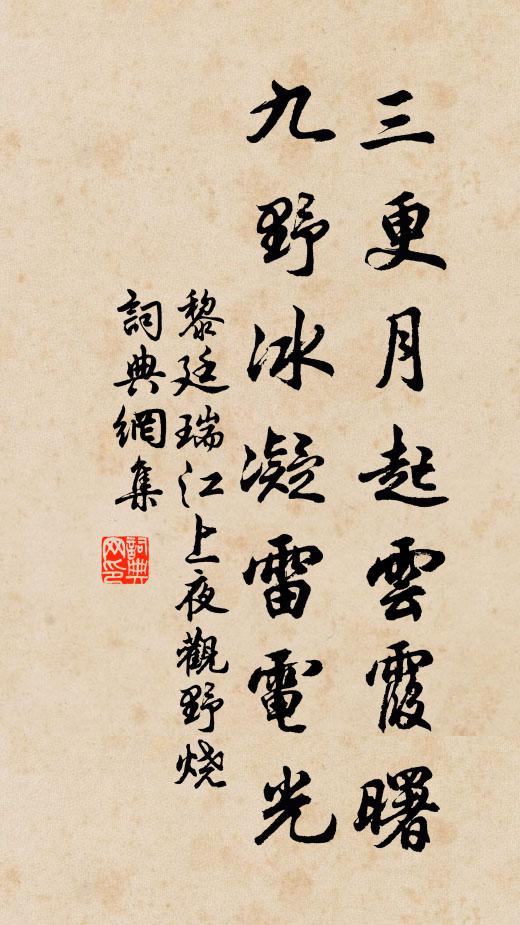 三更月起雲霞曙
九野冰凝雷電光
黎廷瑞江上夜觀野烧
詞典網集
詞典网印